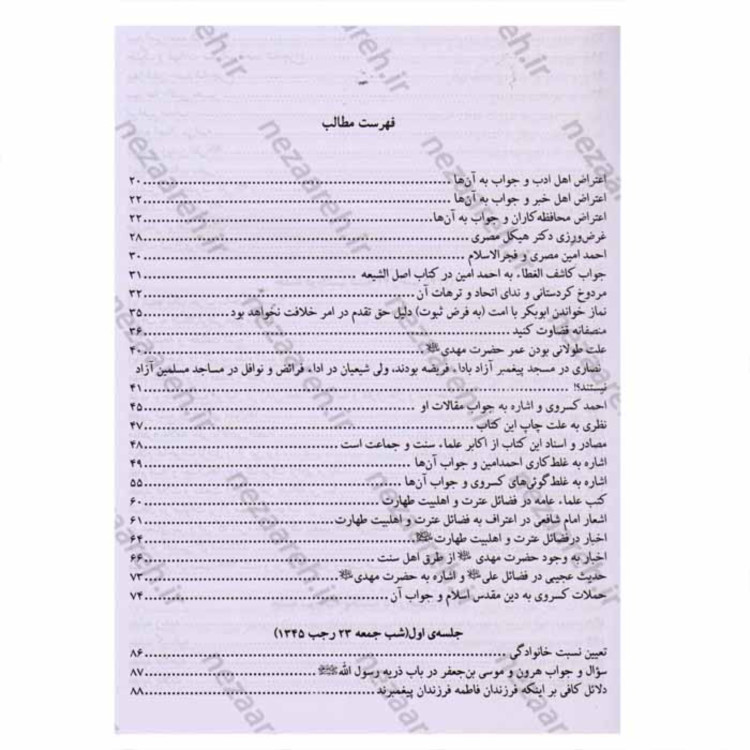 فهرست مطالب
اعتراض اهل ادب و جواب به آن‌ها ..... ۲۰
اعتراض اهل خبر و جواب به آن‌ها ..... ۲۲
اعتراض محافظه‌کاران و جواب به آن‌ها ..... ۲۲
غرض‌ورزی دکتر هیکل مصری ..... ۲۸
احمد امین مصری و فجرالاسلام ..... ۳۰
جواب کاشف الغطاء به احمد امین در کتاب اصل الشیعه ..... ۳۱
مردوخ کردستانی و ندای اتحاد و ترهات آن ..... ۳۲
نماز خواندن ابوبکر با امت (به فرض ثبوت) دلیل حق تقدم در امر خلافت نخواهد بود ..... ۳۵
منصفانه قضاوت کنید ..... ۳۶
علت طولانی بودن عمر حضرت مهدی ..... ۴۰
نصاری در مسجد پیغمبر آزاد باداء فریضه بودند، ولی شیعیان در اداء فرائض و نوافل در مساجد مسلمین آزاد
نیستند؟! ..... ۴۱
احمد کسروی و اشاره به جواب مقالات او ..... ۴۵
نظری به علت چاپ این کتاب ..... ۴۷
مصادر و اسناد این کتاب از اکابر علماء سنت و جماعت است ..... ۴۸
اشاره به غلط‌کاری احمدامین و جواب آن‌ها ..... ۴۹
اشاره به غلط‌گوئی‌های کسروی و جواب آن‌ها ..... ۵۵
کتب علماء عامه در فضائل عترت و اهلبیت طهارت ..... ۶۰
اشعار امام شافعی در اعتراف به فضائل عترت و اهلبیت طهارت ..... ۶۱
اخبار درفضائل عترت و اهلبیت طهارت ..... ۶۴
اخبار به وجود حضرت مهدی از طرق اهل سنت ..... ۶۶
حدیث عجیبی در فضائل علی و اشاره به حضرت مهدی ..... ۷۳
حملات کسروی به دین مقدس اسلام و جواب آن ..... ۷۴
جلسه‌ی اول(شب جمعه ۲۳ رجب ۱۳۴۵)
تعیین نسبت خانوادگی ..... ۸۶
سؤال و جواب هرون و موسی بن‌جعفر در باب ذریه رسول الله ..... ۸۷
دلائل کافی بر اینکه فرزندان فاطمه فرزندان پیغمبرند ..... ۸۸
nezaareh.ir